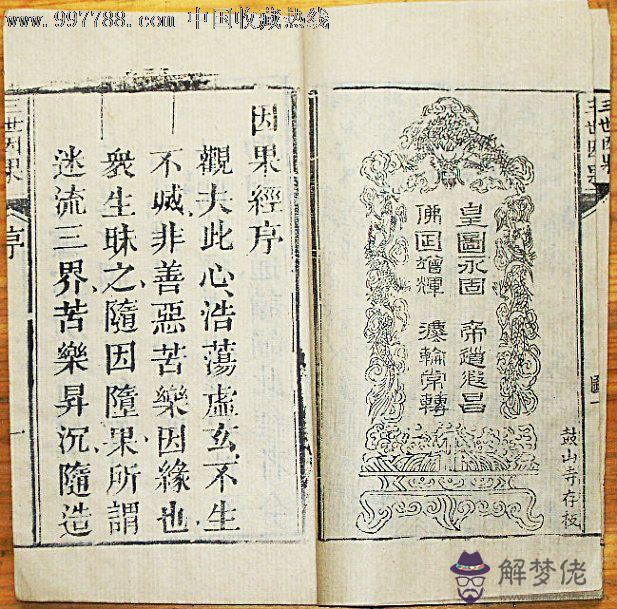 www.997788.com 中国收藏热线
三世因果
圖一
皇圖永固　帝道遐昌
佛日增輝　法輪常轉
鼓山寺存板
因果經序
觀夫此心浩蕩虛玄不生
不滅非善惡苦樂因緣也
衆生昧之隨因墮果所謂
迷流三界苦樂昇沉隨造
三世因果
序
一
解梦佬